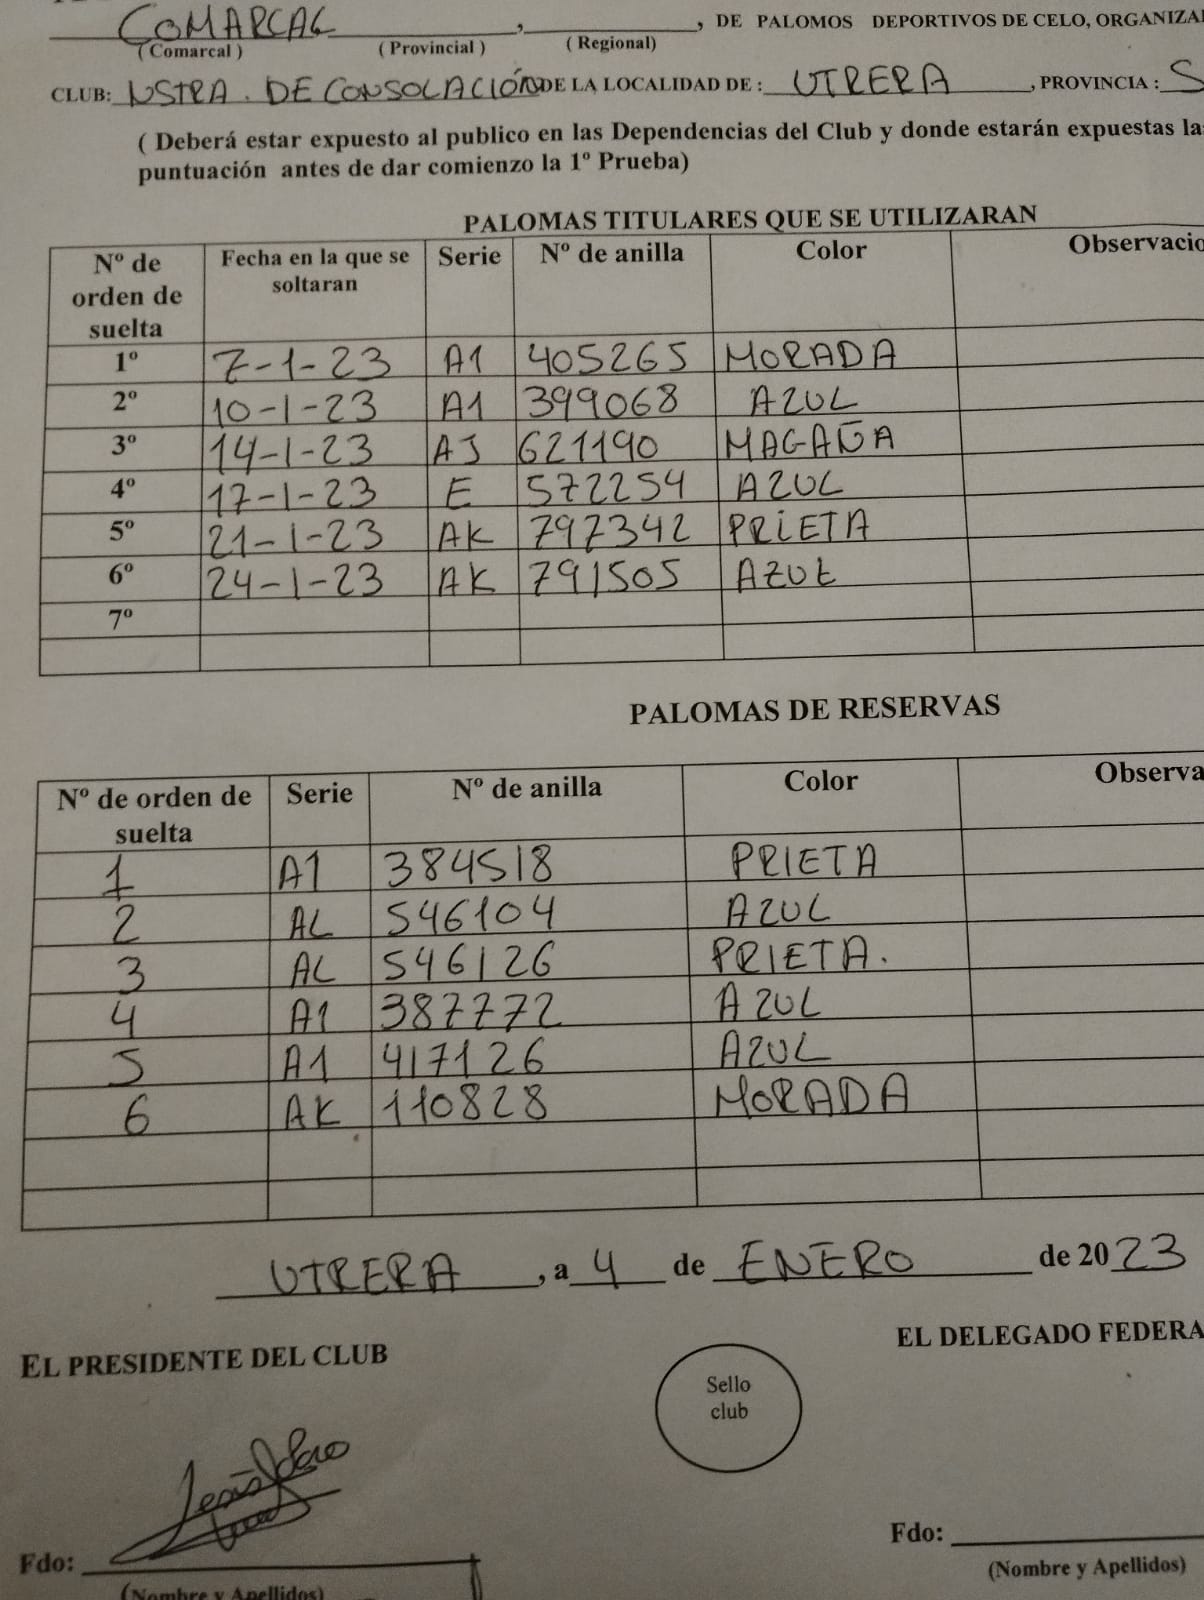 COMARCAL , , DE PALOMOS DEPORTIVOS DE CELO, ORGANIZA
( Comarcal ) ( Provincial ) ( Regional)
CLUB: NSTRA. DE CONSOLACIÓN DE LA LOCALIDAD DE : UTRERA , PROVINCIA : S
( Deberá estar expuesto al publico en las Dependencias del Club y donde estarán expuestas la
puntuación antes de dar comienzo la 1º Prueba)
PALOMAS TITULARES QUE SE UTILIZARAN
Nº de orden de suelta Fecha en la que se soltaran Serie Nº de anilla Color Observacio
1º 7-1-23 A1 405265 MORADA
2º 10-1-23 A1 399068 AZUL
3º 14-1-23 AJ 621190 MAGAÑA
4º 17-1-23 E 572254 AZUL
5º 21-1-23 AK 797342 PRIETA
6º 24-1-23 AK 791505 AZUL
7º
PALOMAS DE RESERVAS
Nº de orden de suelta Serie Nº de anilla Color Observa
1 A1 384518 PRIETA
2 AL 546104 AZUL
3 AL 546126 PRIETA.
4 A1 387772 AZUL
5 A1 417126 AZUL
6 AK 110828 MORADA
UTRERA , a 4 de ENERO de 2023
EL PRESIDENTE DEL CLUB EL DELEGADO FEDERA
Sello
club
Fdo: Fdo:
(Nombre y Apellidos) (Nombre y Apellidos)